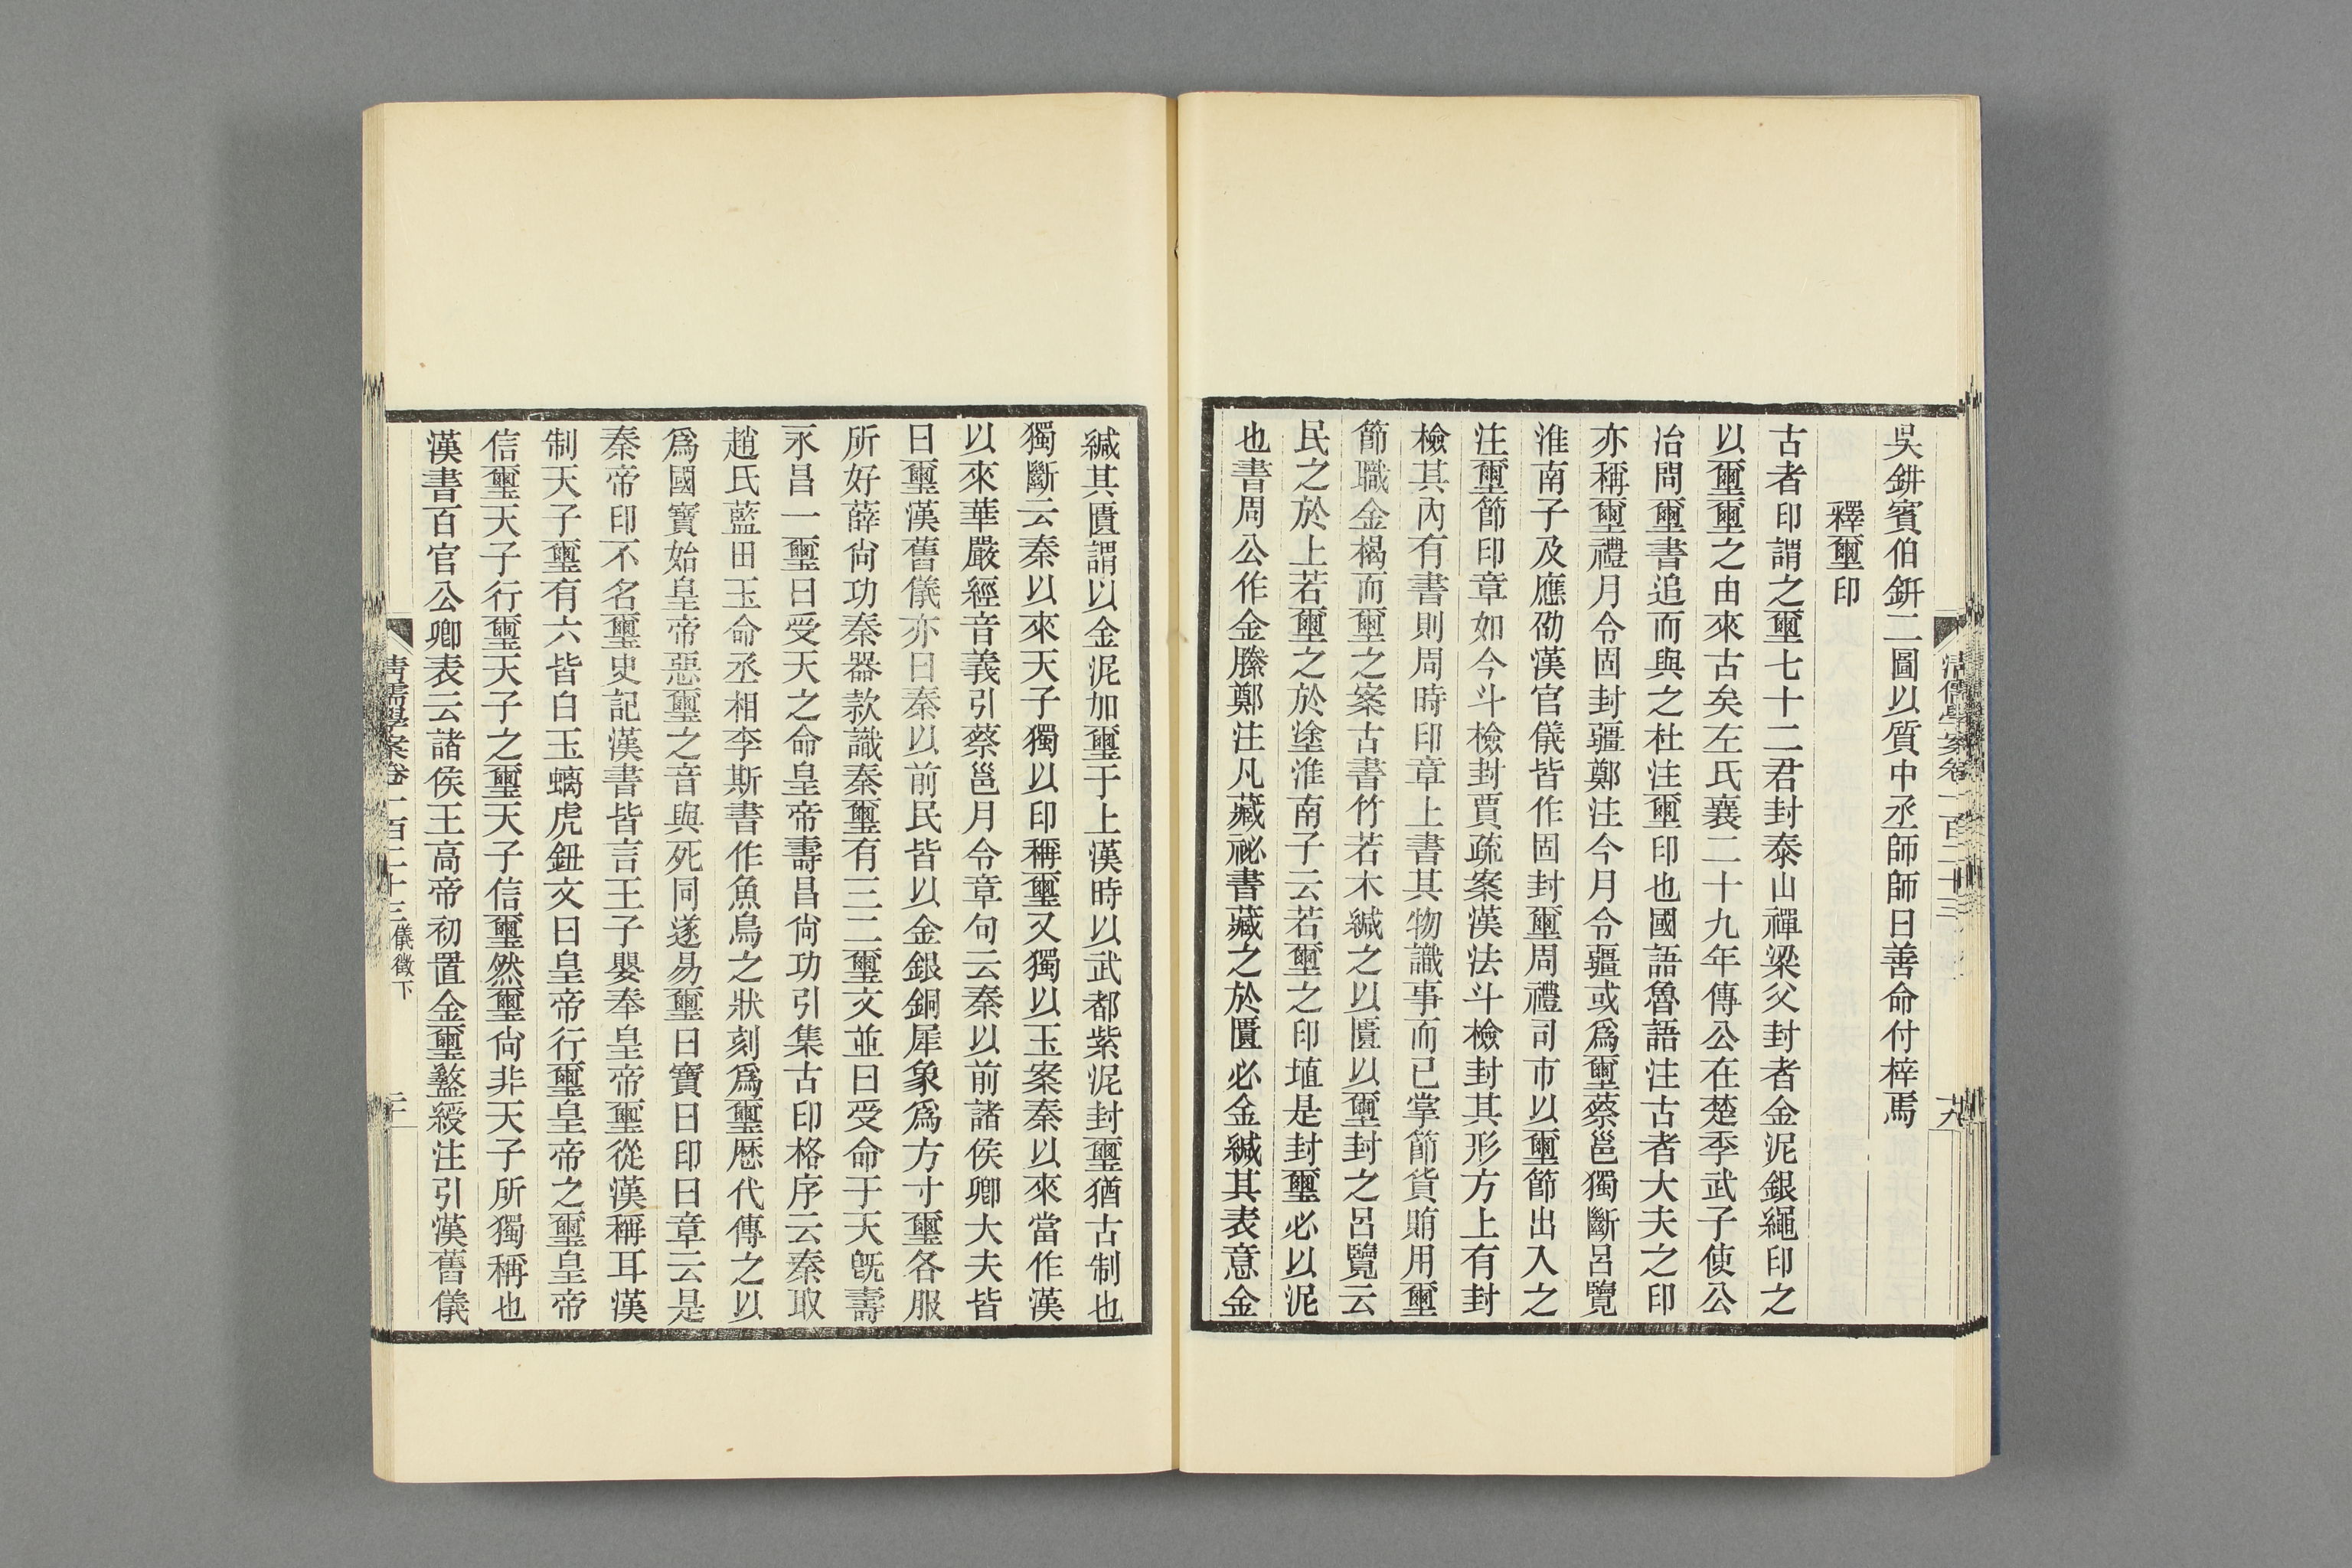 吳鉼賓伯鈃二圖以質中丞師師曰善命付梓焉
釋壐印
古者印謂之壐七十二君封泰山禪梁父封者金泥銀繩印之
以壐壐之由來古矣左氏襄二十九年傳公在楚季武子使公
冶問壐書追而與之杜注壐印也國語魯語注古者大夫之印
亦稱壐禮月令固封疆鄭注今月令疆或爲壐蔡邕獨斷呂覽
淮南子及應劭漢官儀皆作固封壐周禮司市以壐節出入之
注壐節印章如今斗檢封賈疏案漢法斗檢封其形方上有封
檢其內有書則周時印章上書其物識事而已掌節貨賄用壐
節職金楬而壐之案古書竹若木緘之以匱以壐封之呂覽云
民之於上若壐之於塗淮南子云若壐之印埴是封壐必以泥
也書周公作金縢鄭注凡藏祕書藏之於匱必金緘其表意金
緘其匱謂以金泥加壐于上漢時以武都紫泥封壐猶古制也
獨斷云秦以來天子獨以印稱壐又獨以玉案秦以來當作漢
以來華嚴經音義引蔡邕月令章句云秦以前諸侯卿大夫皆
曰壐漢舊儀亦曰秦以前民皆以金銀銅犀象爲方寸壐各服
所好薛尙功秦器款識秦壐有三二壐文並曰受命于天旣壽
永昌一壐曰受天之命皇帝壽昌尙功引集古印格序云秦取
趙氏藍田玉命丞相李斯書作魚鳥之狀刻爲壐歷代傳之以
爲國寶始皇帝惡壐之音與死同遂易壐曰寶曰印曰章云是
秦帝印不名壐史記漢書皆言王子嬰奉皇帝壐從漢稱耳漢
制天子壐有六皆白玉螭虎鈕文曰皇帝行壐皇帝之壐皇帝
信壐天子行壐天子之壐天子信壐然壐尙非天子所獨稱也
漢書百官公卿表云諸侯王高帝初置金壐盭綬注引漢舊儀
清儒學案卷一百二十三 儀徵下